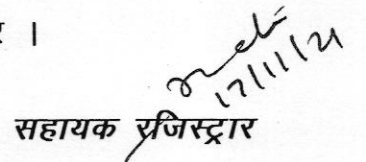 र ।
17/11/21
सहायक रजिस्ट्रार